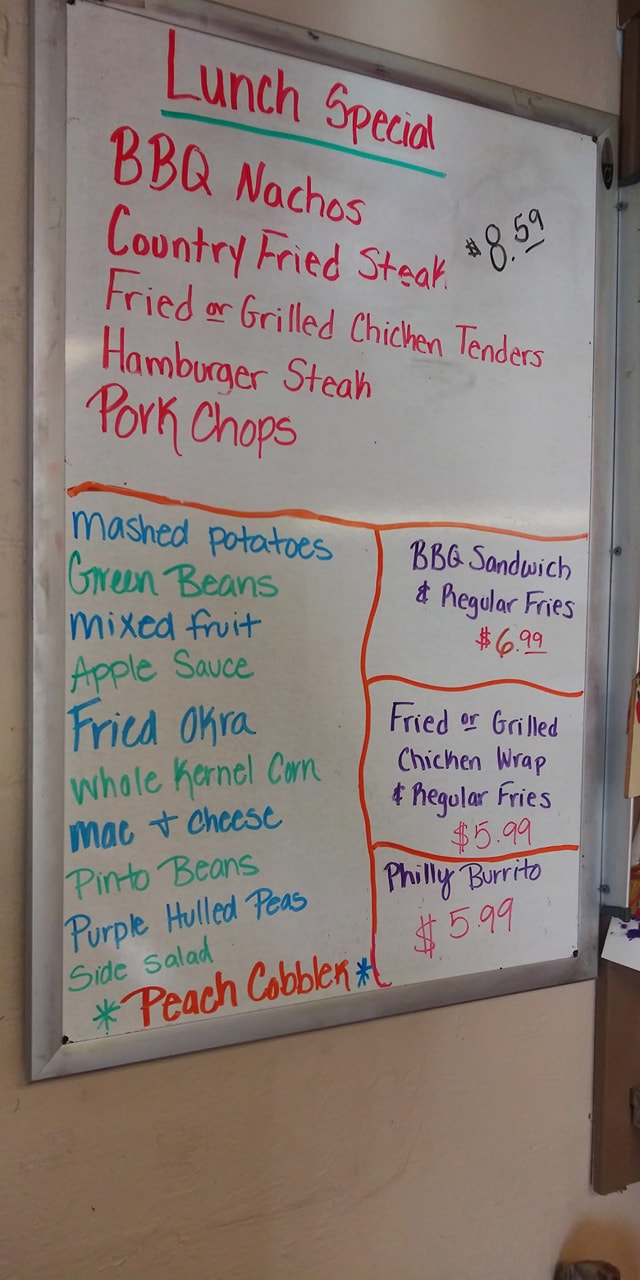 Lunch Special
BBQ Nachos
Country Fried Steak $8.59
Fried or Grilled Chicken Tenders
Hamburger Steak
Pork Chops
mashed potatoes
Green Beans
mixed fruit
Apple Sauce
Fried Okra
whole Kernel Corn
mac + cheese
Pinto Beans
Purple Hulled Peas
Side Salad
* Peach Cobbler *
BBQ Sandwich
& Regular Fries
$6.99
Fried or Grilled
Chicken Wrap
& Regular Fries
$5.99
Philly Burrito
$5.99